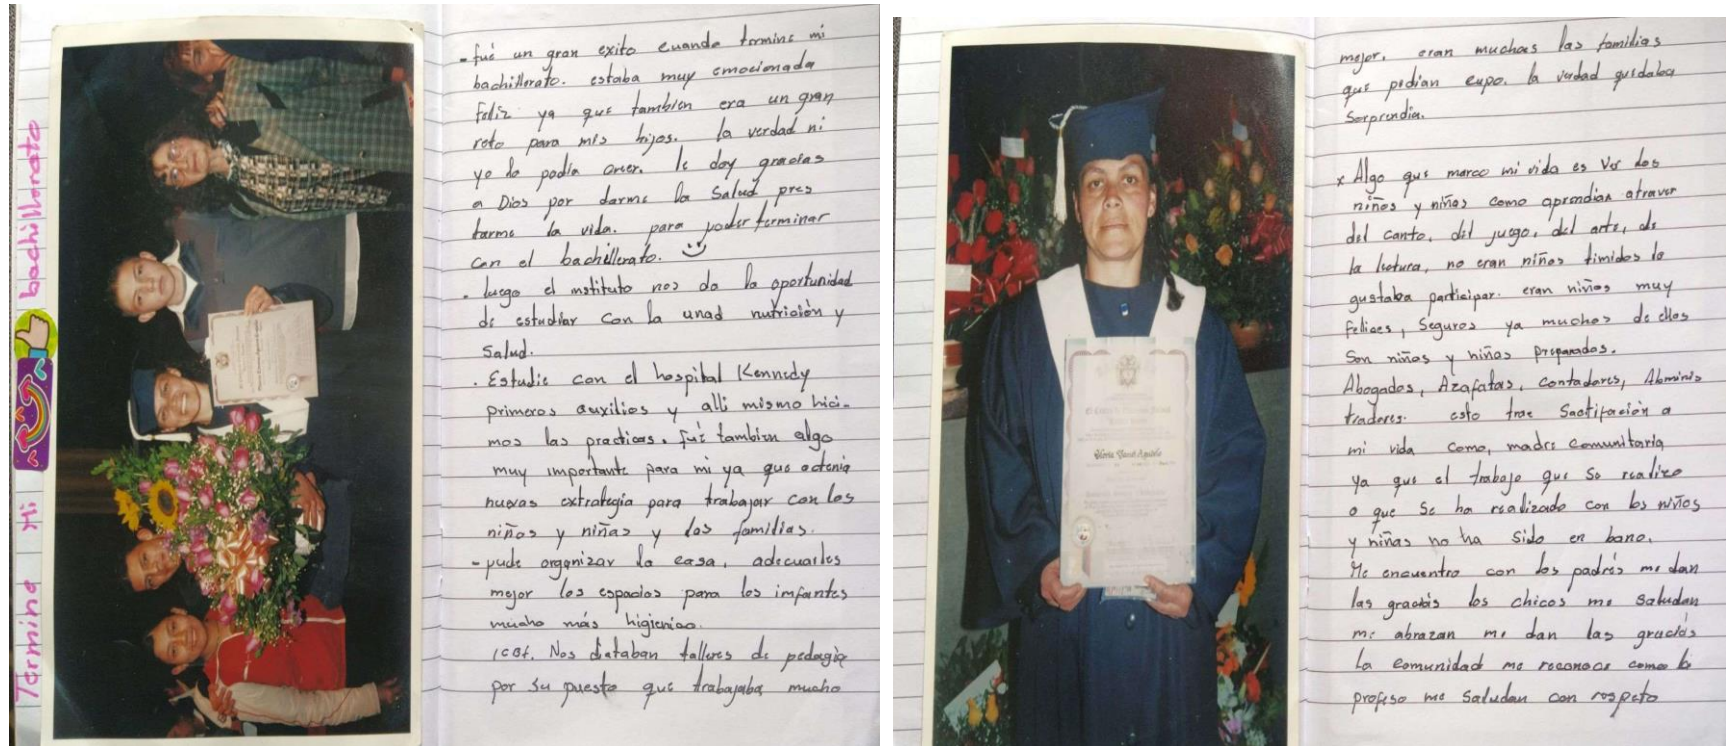 Termina Mi bachillerato
- fué un gran exito cuando termine mi
bachillerato. estaba muy emocionada
feliz ya que tambien era un gran
reto para mis hijos. la verdad ni
yo lo podia creer. le doy gracias
a Dios por darme la salud pres
tarme la vida. para poder terminar
con el bachillerato.
- luego el instituto nos da la oportunidad
de estudiar con la unad nutrición y
salud.
. Estudie con el hospital Kennedy
primeros auxilios y alli mismo hici-
mos las practicas. fué tambien algo
muy importante para mi ya que octenia
nuevas extrategia para trabajar con los
niños y niñas y las familias.
- pude organizar la casa, adecuarles
mejor los espacios para los imfantes
mucho más higienico.
ICBF. Nos dictaban talleres de pedagia
por su puesto que trabajaba mucho
mejor. eran muchas las familias
que pedian cupo. la verdad quedaba
Sorprendia.
x Algo que marco mi vida es ver los
niños y niñas como aprendian atraver
del canto, del juego, del arte, de
la lectura, no eran niños timidos le
gustaba participar. eran niños muy
felices, Seguros ya muchos de ellos
Son niños y niñas preparados.
Abogados, Azafatas, contadores, Abminis
tradores. esto trae Sactifación a
mi vida como, madre comunitaria
ya que el trabajo que se realizo
o que se ha realizado con los niños
y niñas no ha sido en bano.
Me encuentro con los padres me dan
las gracias los chicos me saludan
me abrazan me dan las gracias
la comunidad me reconoce como la
profeso me saludan con respeto